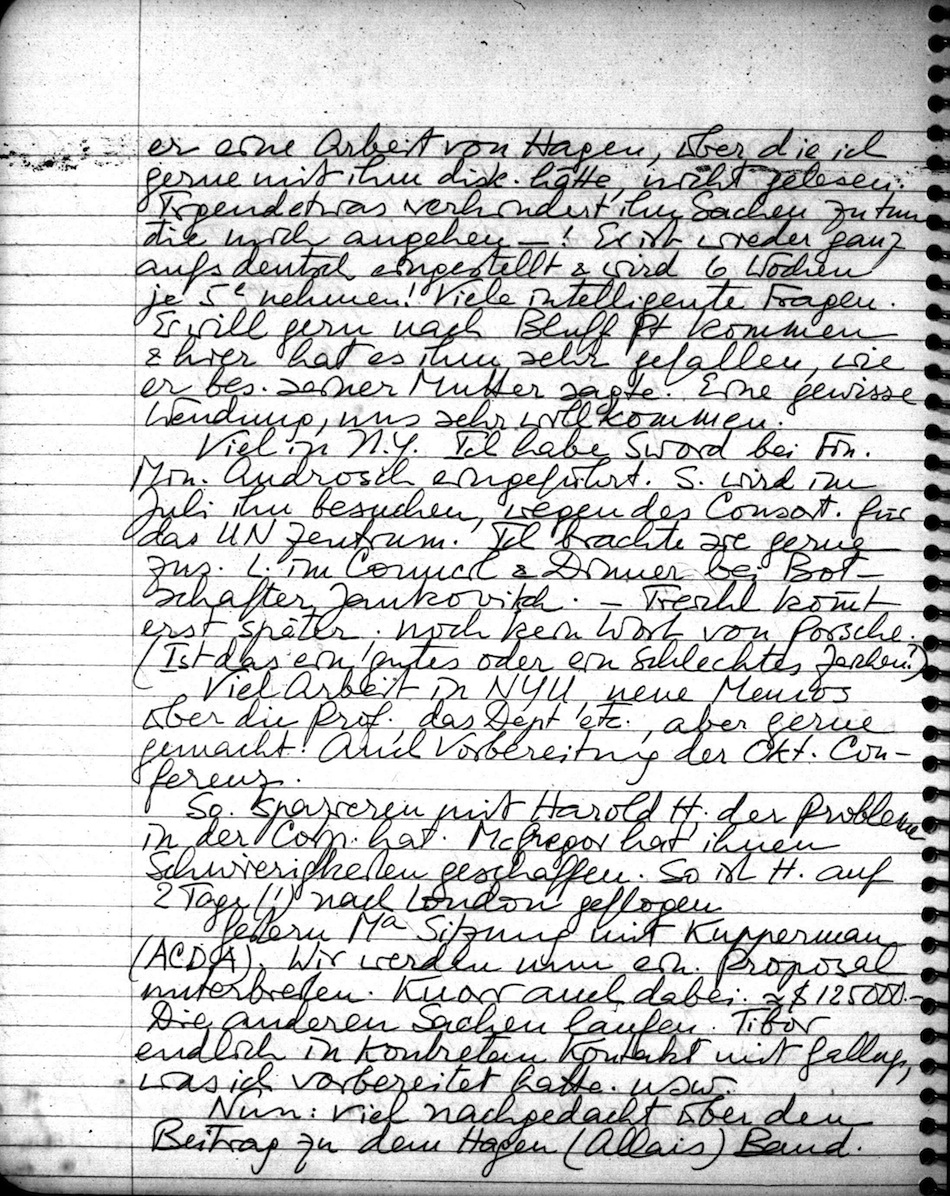 er eine Arbeit von Hagen, über die ich
gerne mit ihm disk. hätte, nicht gelesen.
Irgendetwas verhindert ihn Sachen zu tun
die mich angehen – ! Er ist wieder ganz
aufs deutsch eingestellt & wird 6 Wochen
je 5ᵗ nehmen! Viele intelligente Fragen.
Er will gern nach Bluff Pt kommen
& hier hat es ihm sehr gefallen, wie
er bes. seiner Mutter sagte. Eine gewisse
Wendung, uns sehr willkommen.
Viel in N.Y. Ich habe Sword bei Fin.
Min. Androsch eingeführt. S. wird im
Juli ihn besuchen, wegen des Consort. für
das UN Zentrum. Ich brachte sie gerne
zus. L. im Council & Dinner bei Bot-
schafter Jankovich. – Treichl kom̅t
erst später. Noch kein Wort von Porsche.
(Ist das ein gutes oder ein schlechtes Zeichen?)
Viel Arbeit in NYU, neue Memos
über die Prof. das Dept etc., aber gerne
gemacht! Auch Vorbereitung der Okt. Con-
ferenz.
So. Spazieren mit Harold H. der Probleme
in der Com. hat. McGregor hat ihnen
Schwierigkeiten geschaffen. So ist H. auf
2 Tage (!) nach London geflogen.
Gestern Mᵃ Sitzung mit Kupperman
(ACDA). Wir werden nun ein Proposal
unterbreiten. Knorr auch dabei. ≈ $ 125000.–
Die anderen Sachen laufen. Tibor
endlich in konkretem Kontakt mit
was ich vorbereitet hatte. usw.
Nun: viel nachgedacht über den
Beitrag zu dem Hagen (Allais) Band.